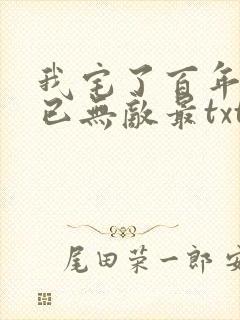 我宅了百年
已無敵最txt
尾田荣一郎 安